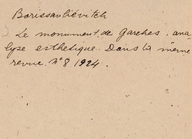 Borissavliévitch
Le monument de Garches, ana
lyse esthétique. Dans la même
revue. N° 8 1924.